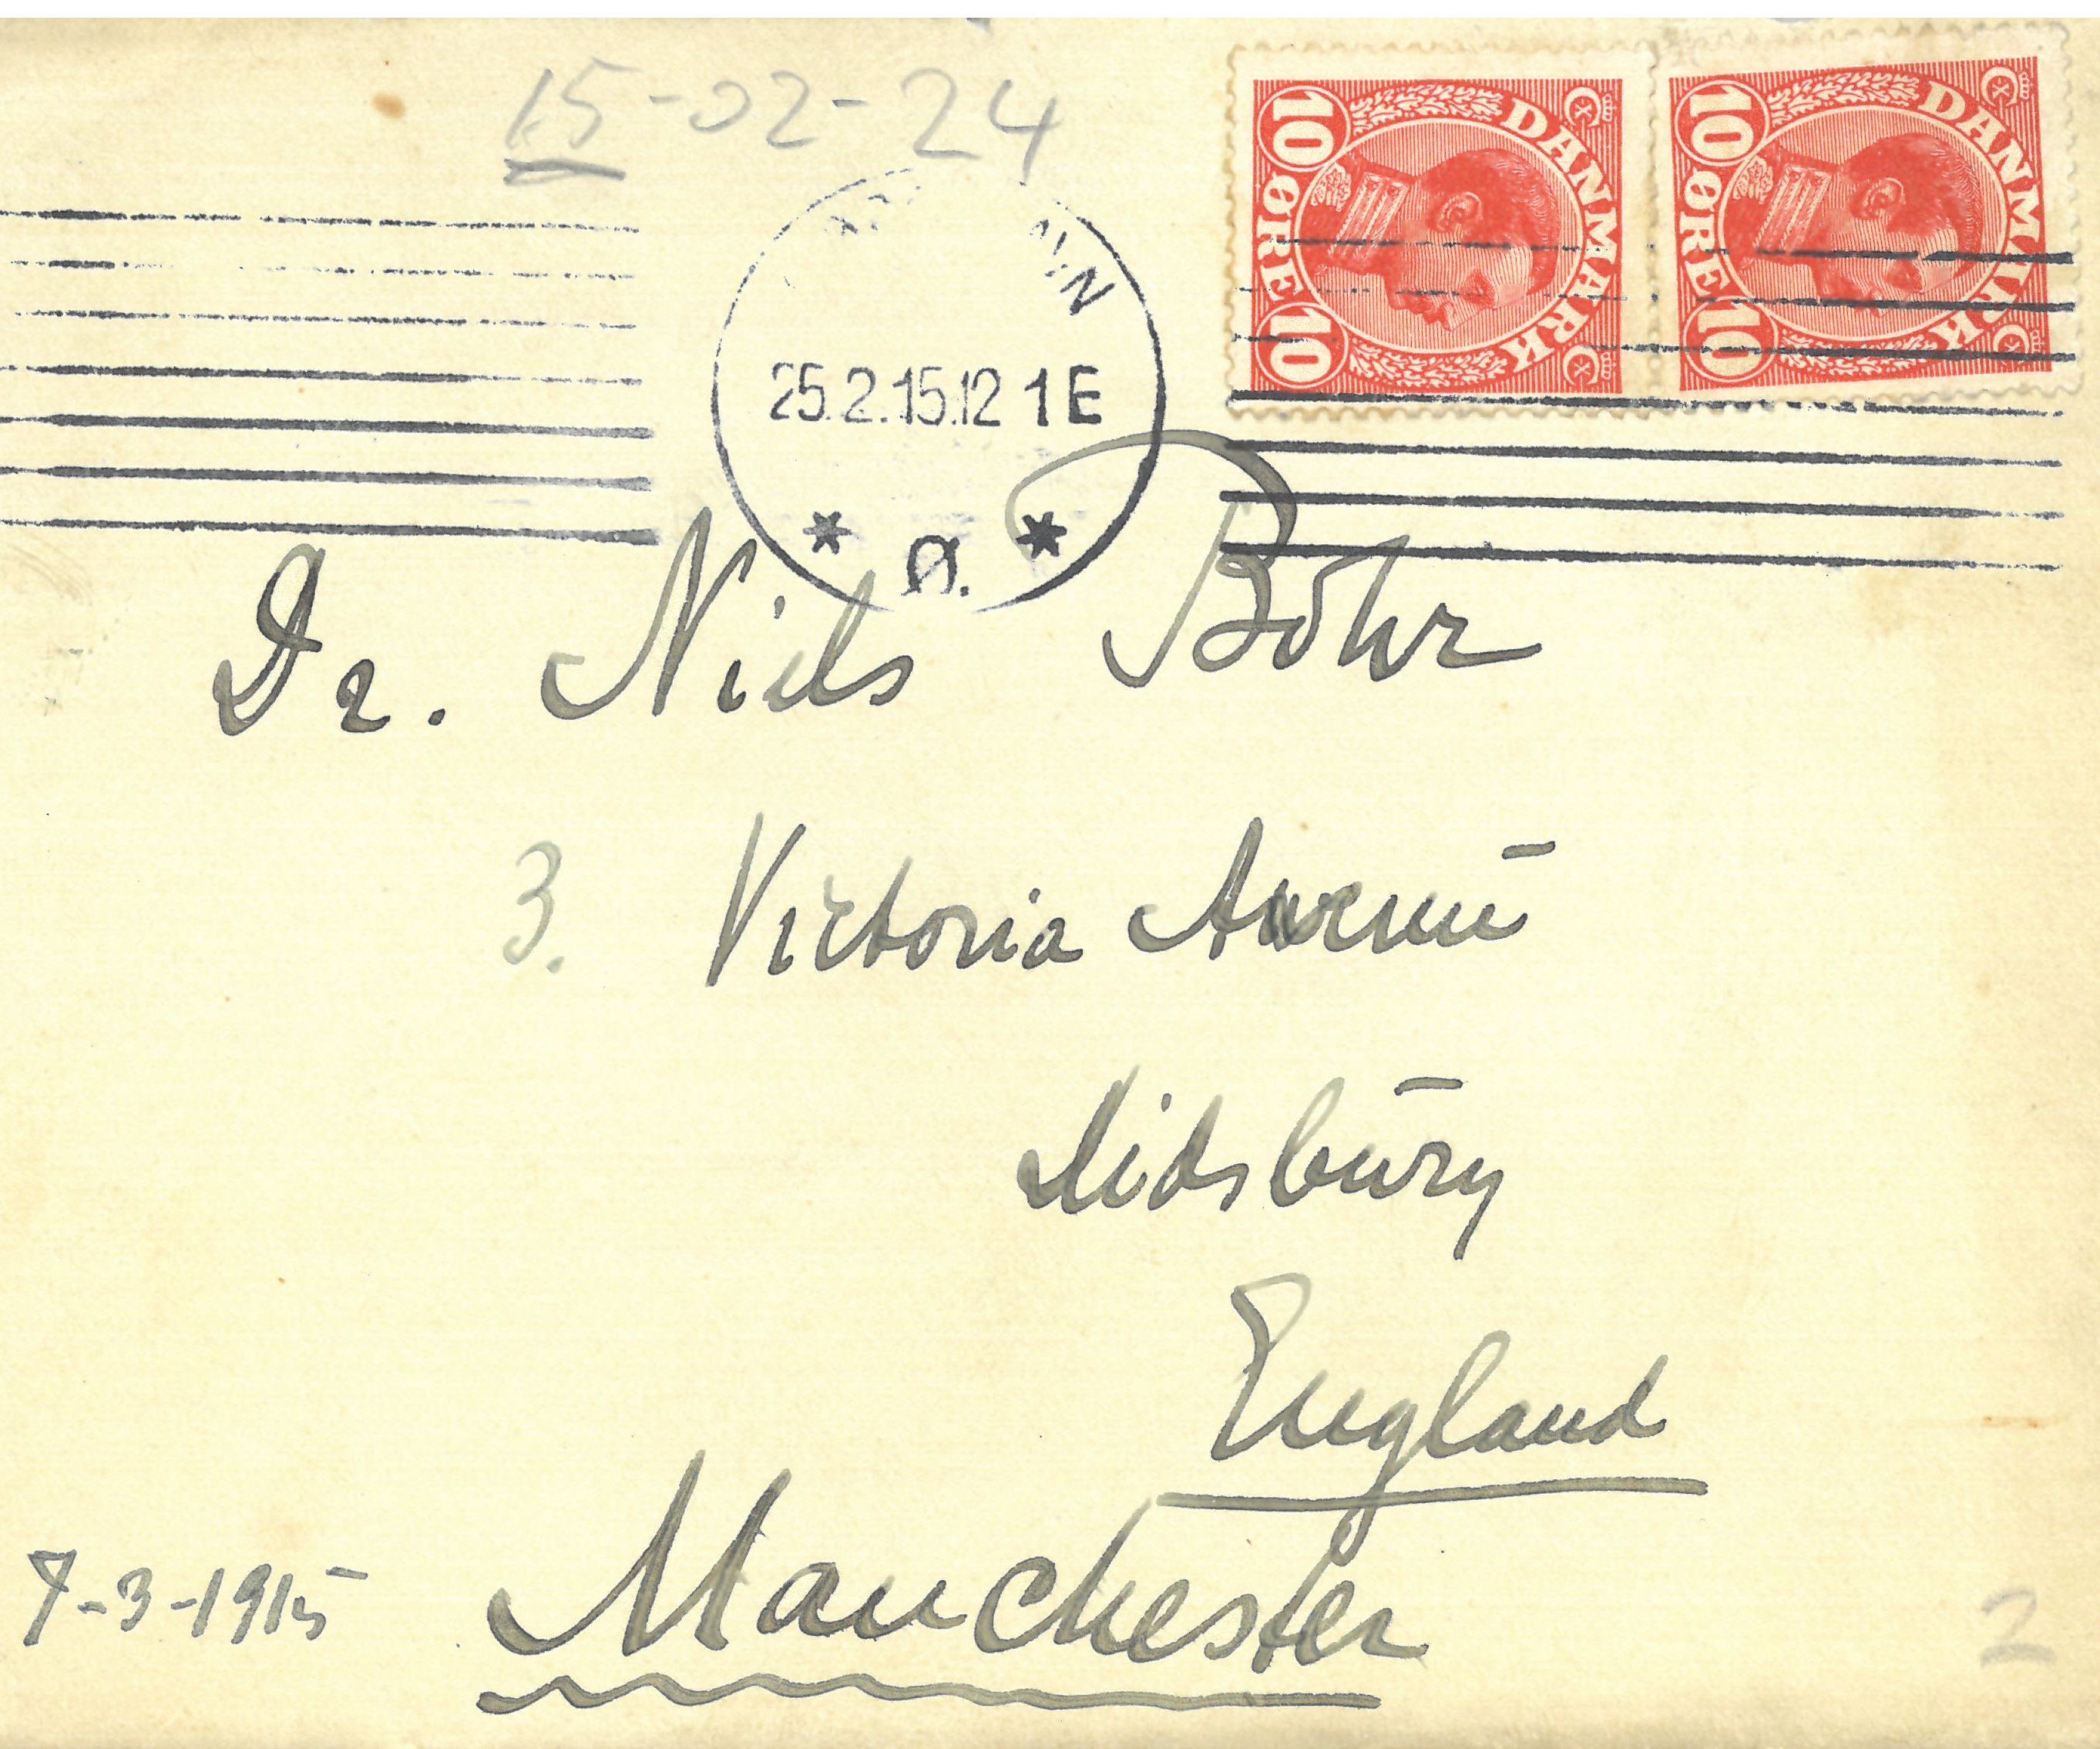 15-02-24
10 DANMARK 10 ØRE
10 DANMARK 10 ØRE
25.2.15.12 1 E
* Ø. *
Dr. Niels Bohr
3. Victoria Avenū
Didsbūry
England
Manchester
7-3-1915
2